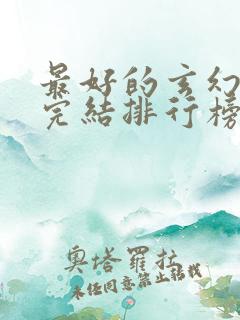 最好的玄幻
完結排行榜
奧塔羅拉
未經同意禁止轉載